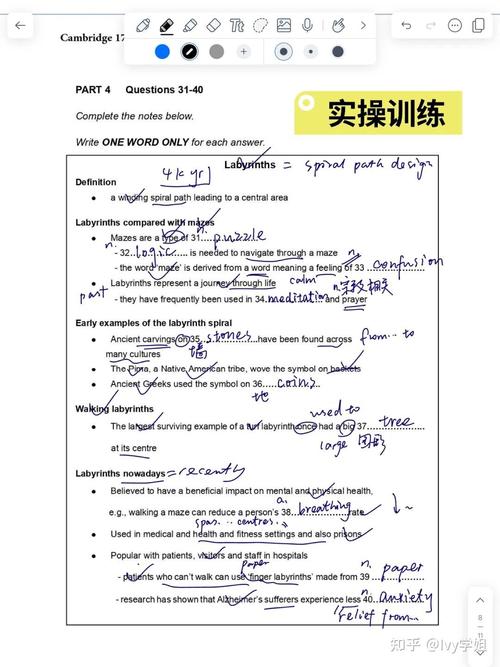 Cambridge 17
PART 4 Questions 31-40
实操训练
Complete the notes below.
Write ONE WORD ONLY for each answer.
4k yr
Labyrinths = spiral path design
Definition
• a winding spiral path leading to a central area
Labyrinths compared with mazes
n.
• Mazes are a type of 31 puzzle
n. - 32 logic is needed to navigate through a maze
- the word 'maze' is derived from a word meaning a feeling of 33 n. confusion
• Labyrinths represent a journey through life calm n. 宗教相关
past - they have frequently been used in 34 meditation and prayer
Early examples of the labyrinth spiral
• Ancient carvings on 35 stones have been found across from... to
many cultures
• The Pima, a Native American tribe, wove the symbol on baskets
• Ancient Greeks used the symbol on 36 coins
Walking labyrinths
used to
• The largest surviving example of a turf labyrinth once had a big 37 tree
at its centre large
Labyrinths nowadays = recently
• Believed to have a beneficial impact on mental and physical health,
e.g., walking a maze can reduce a person's 38 a. breathing rate ↓~
spas... centres..
• Used in medical and health and fitness settings and also prisons
• Popular with patients, visitors and staff in hospitals
paper
- patients who can't walk can use 'finger labyrinths' made from 39 n. paper
- research has shown that Alzheimer's sufferers experience less 40 n. anxiety
relief from...
8
11
知乎 @Ivy学姐